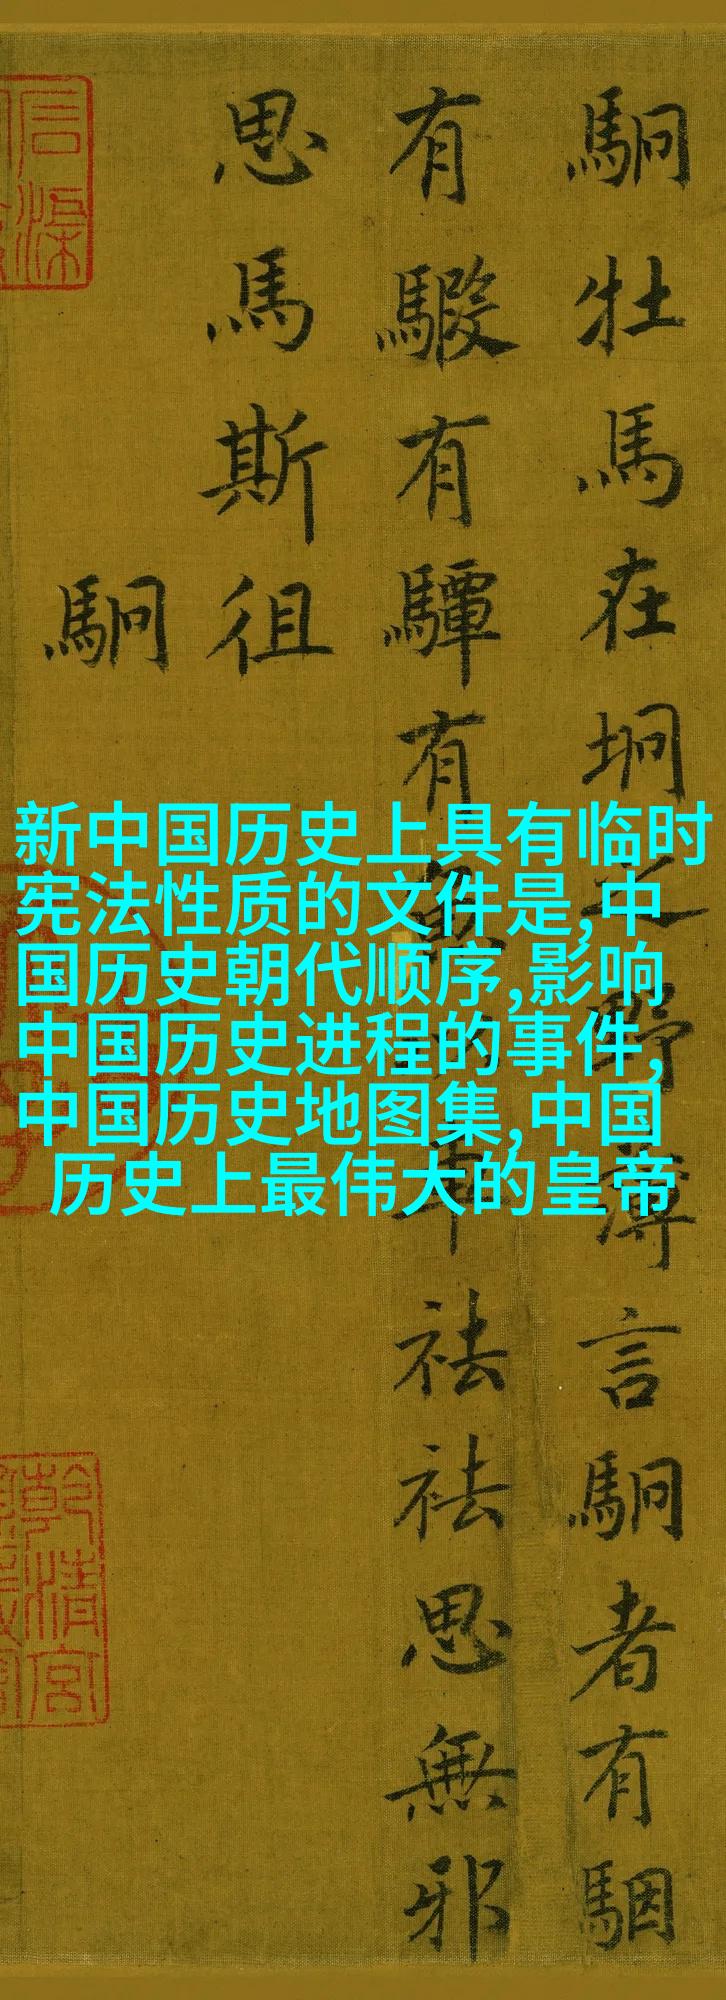 駉牡馬在坰之野薄言駉者有駰
有騢有驔有魚以車祛祛思無邪
思馬斯徂
駉
新中国历史上具有临时
宪法性质的文件是,中
国历史朝代顺序,影响
中国历史进程的事件,
中国历史地图集,中国
历史上最伟大的皇帝
乾清宮